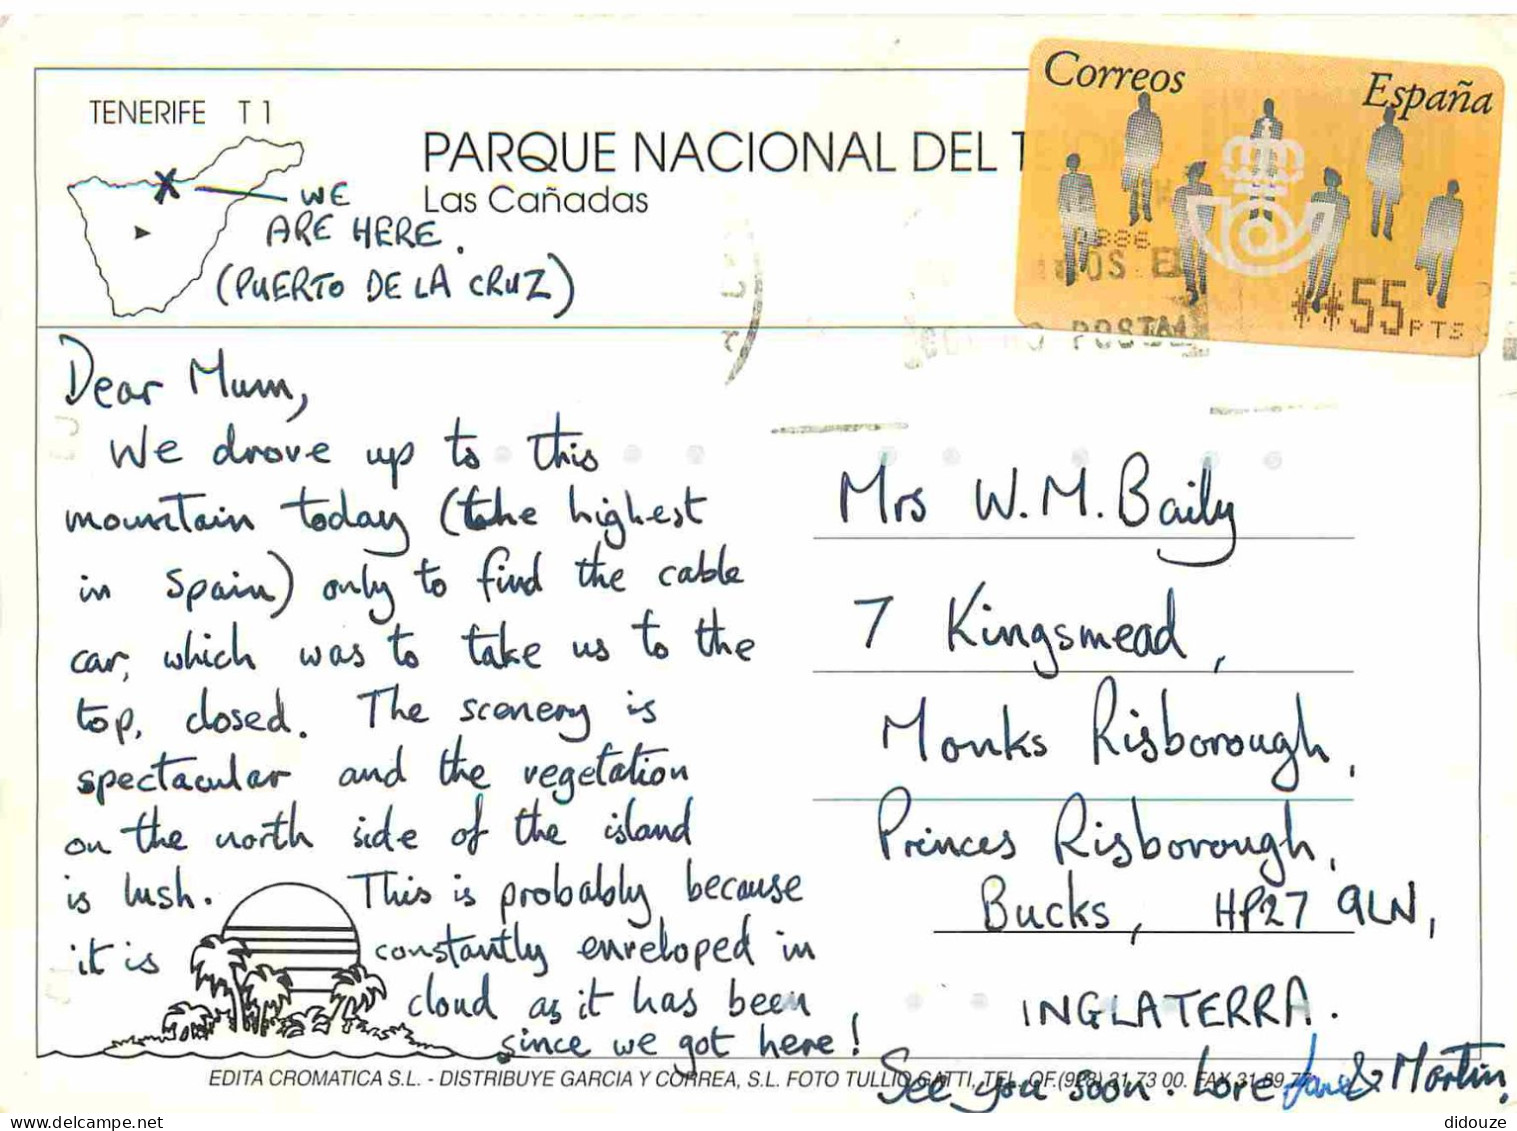 TENERIFE T 1
PARQUE NACIONAL DEL T
Las Cañadas
WE
ARE HERE.
(PUERTO DE LA CRUZ)
Correos
España
**55PTS
POSTAL
Dear Mum,
We drove up to this
mountain today (the highest
in Spain) only to find the cable
car, which was to take us to the
top, closed. The scenery is
spectacular and the vegetation
on the north side of the island
is lush. This is probably because
it is constantly enveloped in
cloud as it has been
since we got here!
Mrs W.M. Baily
7 Kingsmead,
Monks Risborough,
Princes Risborough,
Bucks, HP27 9LN,
INGLATERRA.
See you soon. Love Jane & Martin.
EDITA CROMATICA S.L. - DISTRIBUYE GARCIA Y CORREA, S.L. FOTO TULLIO GATTI, TEL. OF.(928) 31 73 00. FAX 31 89 77
didouze